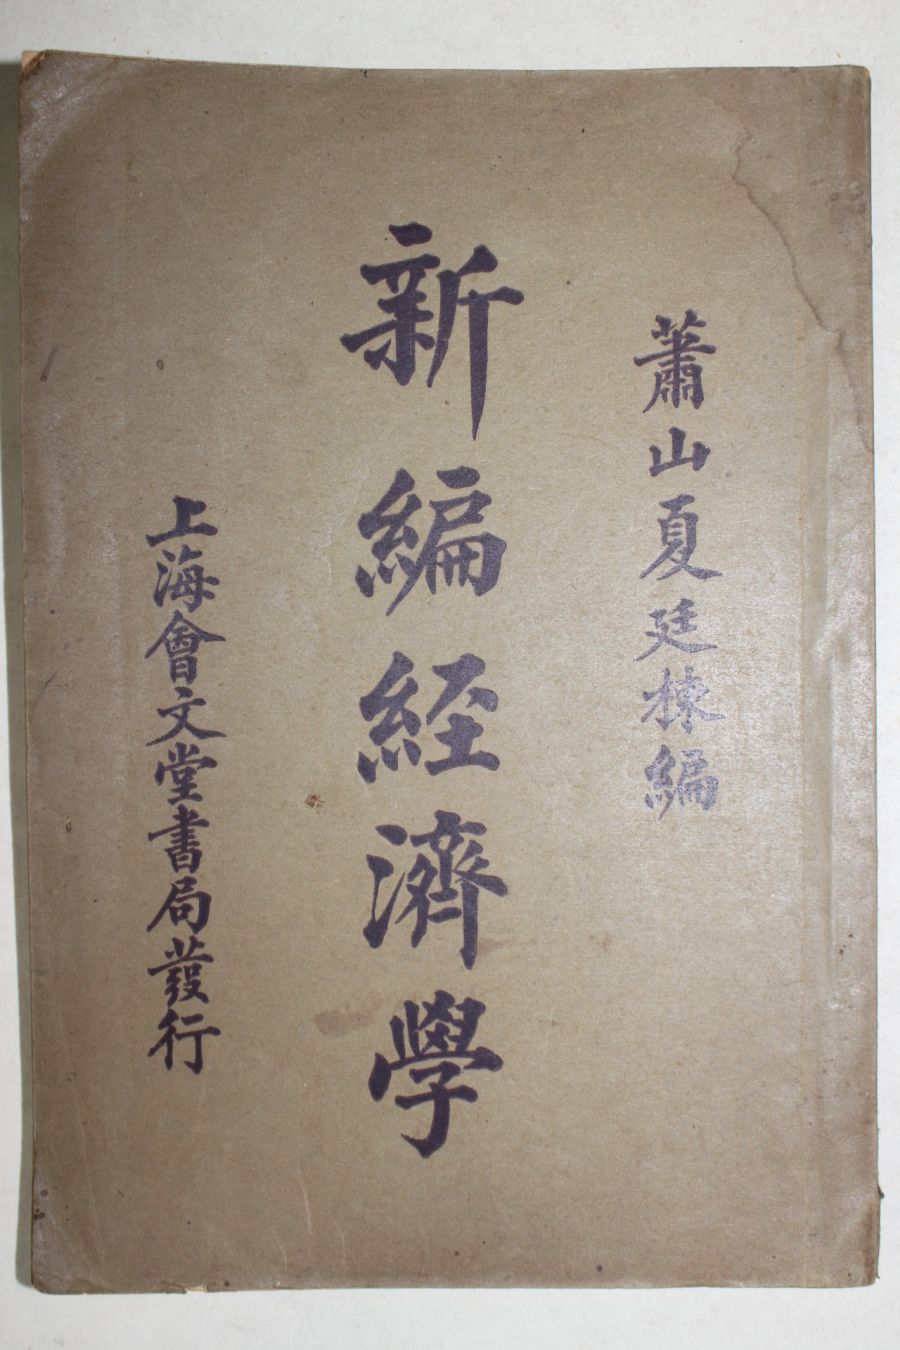 蕭山夏廷棟編
新編經濟學
上海會文堂書局發行